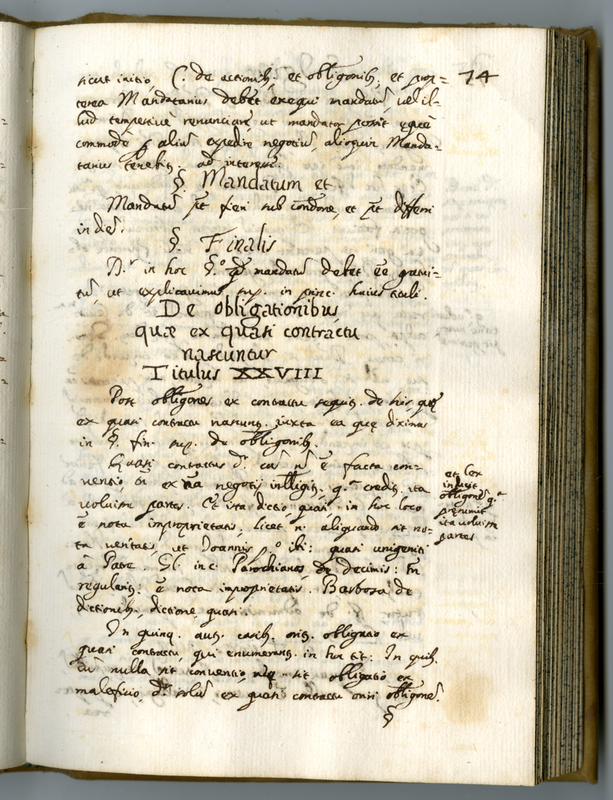 sicut initio C. de actionib. et obligonib. et prop= 74
terea Mandatarius debet exequi mandatū, vel il-
lud tempestivè renunciare, ut mandator possit eque
commodè p alium expedire negotiū, alioquin Manda-
tarius tenebit. ad interesse.
§. Mandatum et
Mandatū pt fieri sub condone, et pt differri
in diē.
§. Finalis
Dr in hoc §.o q mandatū debet ēe gratui=
tū, ut explicavimus sup. in princ. huius tituli.
De obligationibus
quæ ex quasi contractu
nascuntur
Titulus XXVIII
Post obligones ex contractu sequit. de his que
ex quasi contractu nascunt. juxta ea que diximus
in §. fin. sup. de obligonib.
Quasi contractus dr. cas n ē facta con-
ventio, sed ex na negotij intelligit. q.a credit. ita
voluisse partes. Et ista dictio, quasi, in hoc loco
ē nota improprietatis, licet n. aliquando sit no-
ta veritatis, ut Joannis p.o ibi: quasi unigeniti
à Patre. Gl. in c. Parochianos de Decimis: In
regularit. ē nota improprietatis. Barbosa de
dictionib. dictione quasi.
et lex
inducit
obligonē q.a
presumit
ita voluisse
partes
In quinq. aut. casib. orit. obligatio ex
quasi contractu qui enumerant. in hoc tit: In quib.
cū nulla sit conventio neq sit obligatio ex
maleficio, dr. solū ex quasi contractu oriri obligonē.
§